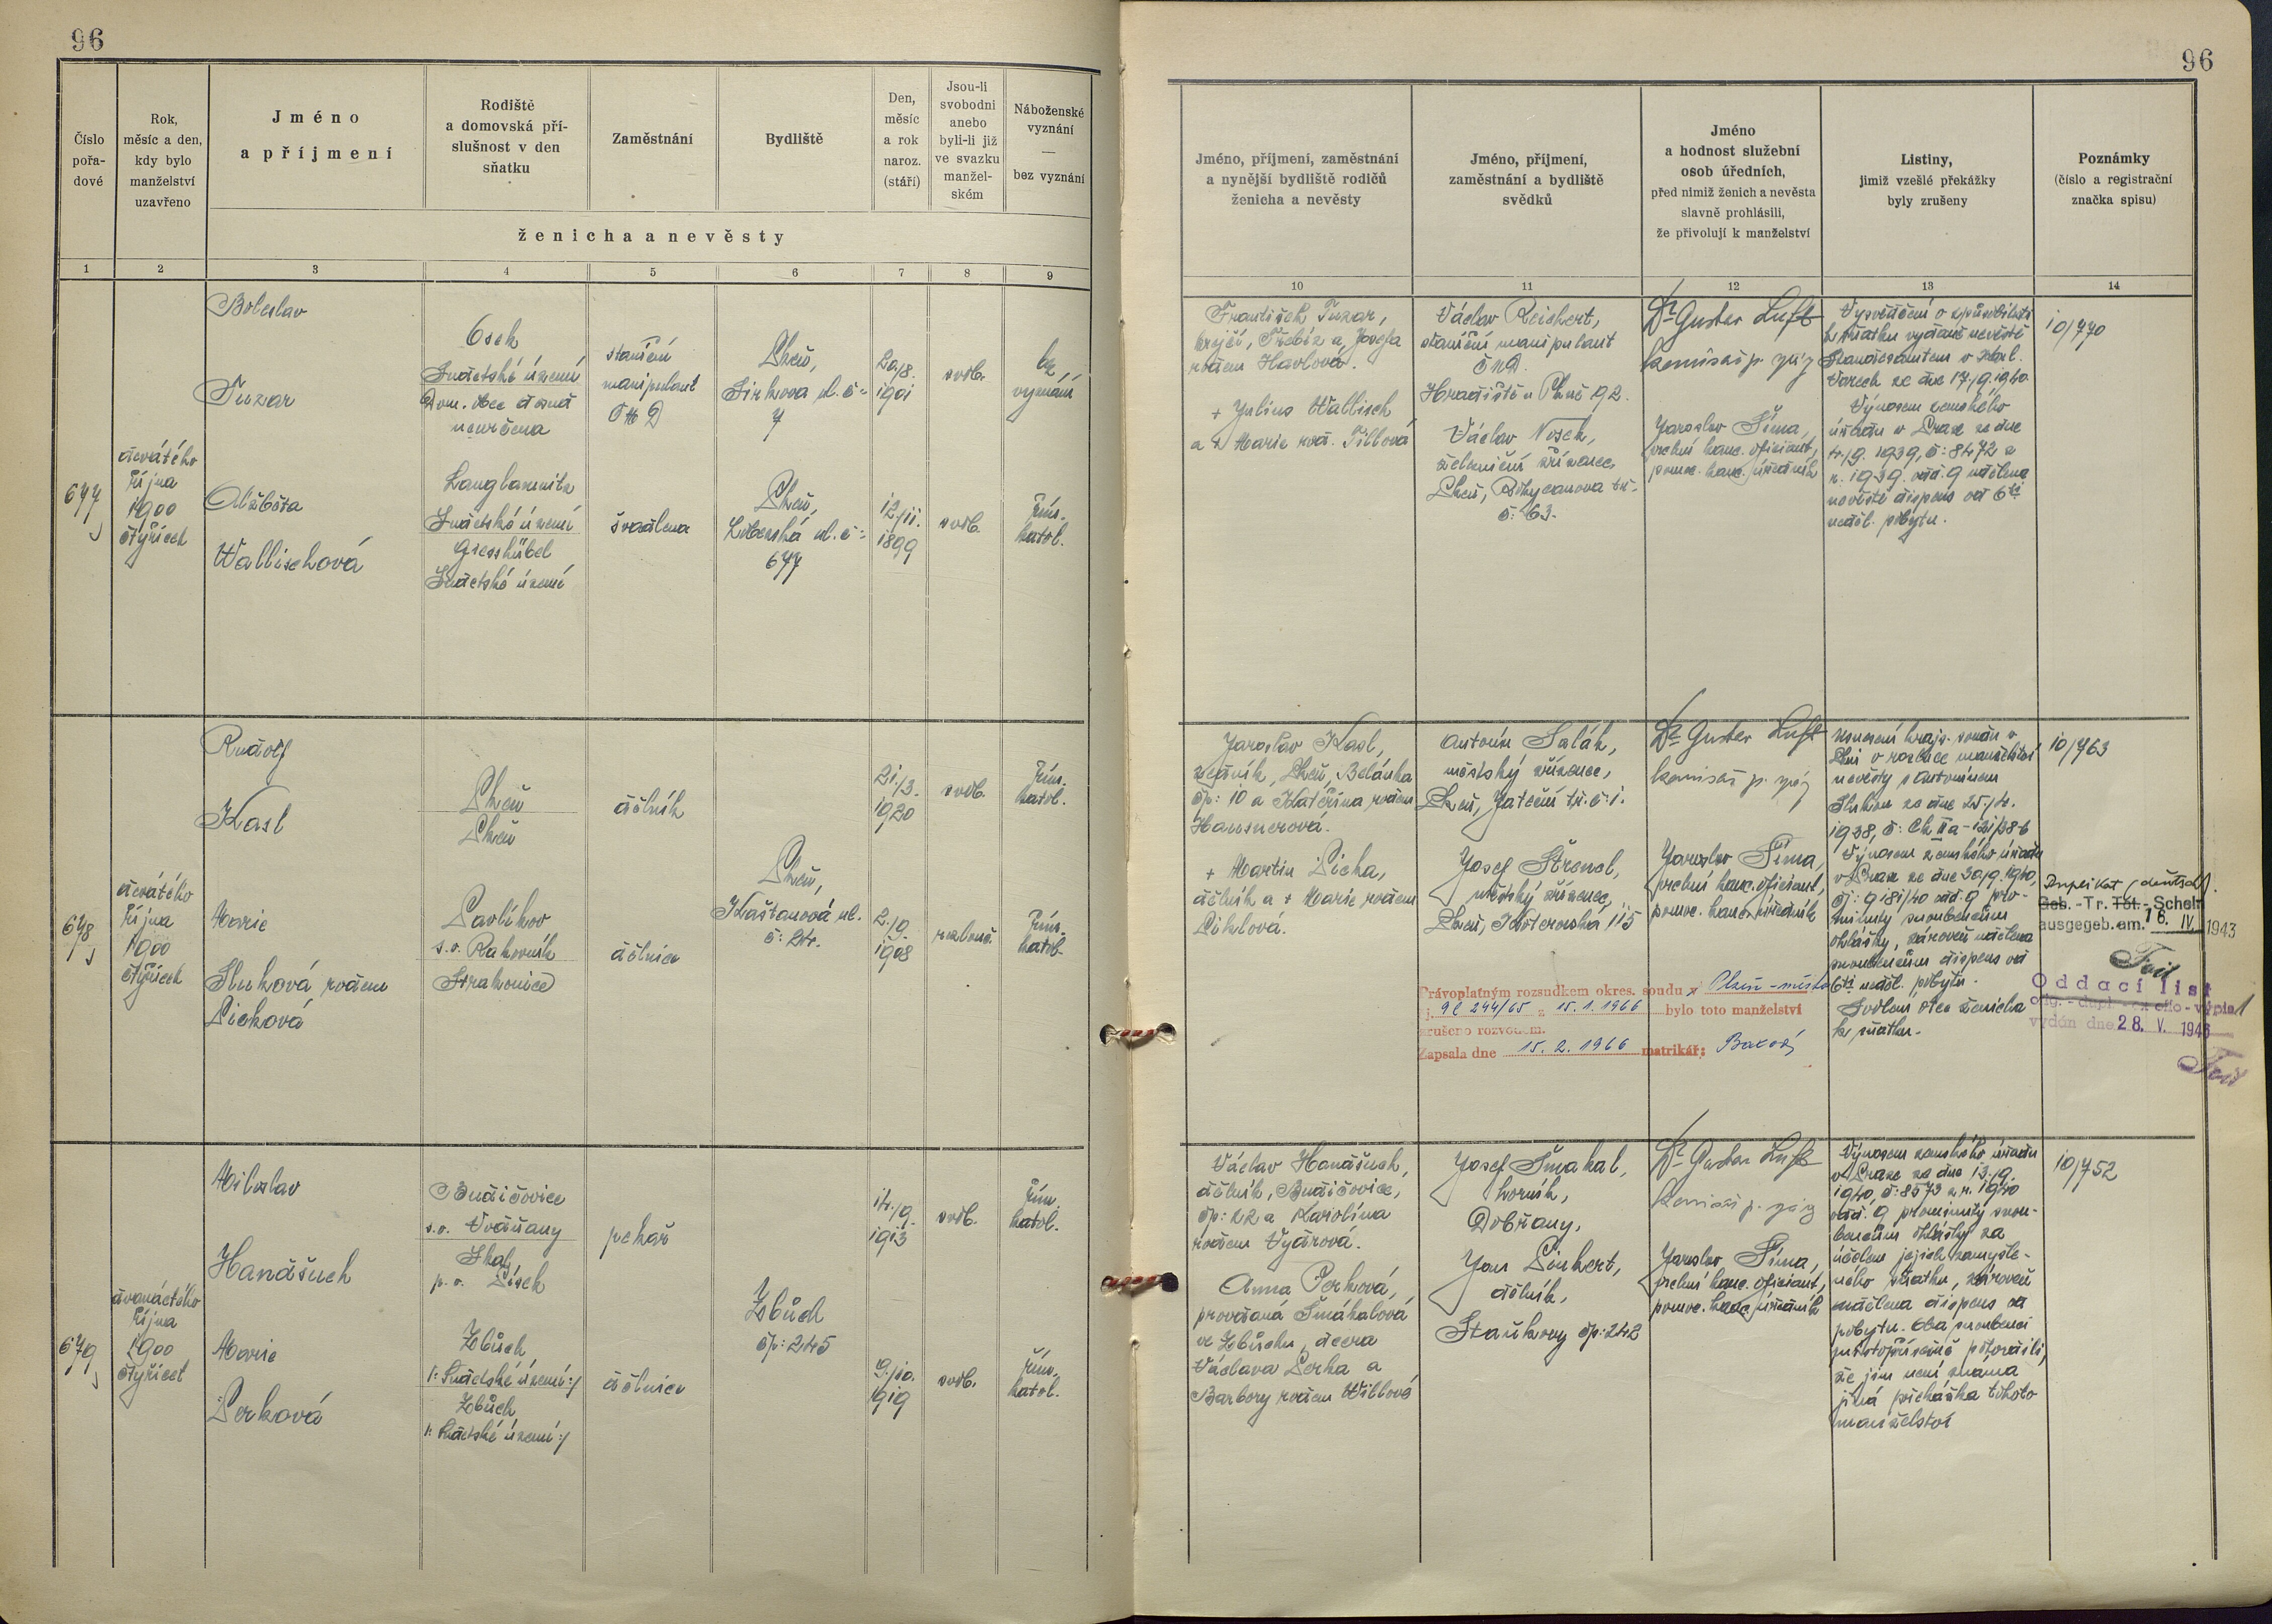 96
96
Číslo pořa- dové
Rok, měsíc a den, kdy bylo manželství uzavřeno
Jméno a příjmení
Rodiště a domovská pří- slušnost v den sňatku
Zaměstnání
Bydliště
Den, měsíc a rok naroz. (stáří)
Jsou-li svobodni anebo byli-li již ve svazku manžel- ském
Náboženské vyznání — bez vyznání
ženicha a nevěsty
Jméno, příjmení, zaměstnání a nynější bydliště rodičů ženicha a nevěsty
Jméno, příjmení, zaměstnání a bydliště svědků
Jméno a hodnost služební osob úředních, před nimiž ženich a nevěsta slavně prohlásili, že přivolují k manželství
Listiny, jimiž vzešlé překážky byly zrušeny
Poznámky (číslo a registrační značka spisu)
1 2 3 4 5 6 7 8 9 10 11 12 13 14
677
devátého
října
1900
čtyřicet
Boleslav
Tuzar
Osek
Sudetské území
Dom. obec dosud
neurčena
staniční
manipulant
ČMD
Plzeň,
Jirkova ul. č:
7
20/8.
1901
svob.
bez
vyznání
Alžběta
Wallischová
Sudetské území
Giesshübel
Sudetské území
švadlena
Plzeň,
ul. č:
677
12/11.
1899
svob.
řím.
katol.
František Tuzar,
krejčí, Třebíz a Josefa
rozem Havlová.
+ Julius Wallisch
a + Marie roz. Tillová
Václav Reichert,
staniční manipulant
ČMD
Hradiště u Plzně 92.
Václav Nosek,
železniční zřízenec,
Plzeň, tř.
č: 63.
Dr Gustav Luft
komisař p. správy
Jaroslav Šíma,
prelni kanc. oficiant,
pomoc. kanc. úředník
Vysvědčení o způsobilosti
k sňatku vydané nevěstě
Standesamtem v Karl.
Varech ze dne 17./9.1940.
Výnosem zemského
úřadu v Praze ze dne
4./9. 1939, č: 8472 z
r. 1939. odd. 9 udělena
nevěstě dispens od 6ti
neděl. pobytu.
10/770
678
devátého
října
1900
čtyřicet
Rudolf
Kasl
Plzeň
Plzeň
dělník
21./3.
1920
svob.
řím.
katol.
Marie
Sluková rozem
Pichová
Pavlíkov
s.o. Rakovník
Strakonice
dělnice
Plzeň,
Kaštanová ul.
č: 24.
2./9.
1908
rozlouč.
řím.
katol.
Jaroslav Kasl,
zedník, Plzeň, Belánka
čp: 10 a Kateřina rozem
Hausnerová.
+ Martin Picha,
dělník a + Marie rozem
Piklová.
Antonín Salák,
městský zřízenec,
Plzeň, Jateční tř. č: 1.
Josef Štrencl,
městský zřízenec,
Plzeň, Koterovská 115
Dr Gustav Luft
komisař p. správy
Jaroslav Šíma,
prelni kanc. oficiant,
pomoc. kanc. úředník
Usnesení krajs. soudu v
Plzni o rozluce manželství
nevěsty s Antonínem
Slukou ze dne 25./4.
1938, č: Ck IIa-131/38-6
Výnosem zemského úřadu
v Praze ze dne 30./9.1940,
čj: 9181/40 odd. 9 pro-
minuty snoubencům
ohlášky, zároveň udělena
snoubencům dispens od
6ti neděl. pobytu.
Svolení otce ženicha
ke sňatku.
10/763
Duplikat (deutsch).
Geb.-Tr. Tot.-Schein
ausgegeb. am. 16. IV. 1943
Oddací list
orig. - dupl. - ex offo - výpis
vydán dne 28. V. 1946
Právoplatným rozsudkem okres. soudu v Plzeň-město
čj. 9C 244/65 z 15.1.1966 bylo toto manželství
zrušeno rozvodem.
Zapsala dne 15.2.1966 matrikář:
679
dvanáctého
října
1900
čtyřicet
Miloslav
Hanášuch
Budičovice
s.o. Vodňany
Skal
p.o. Písek
pekař
14./9.
1913
svob.
řím.
katol.
Marie
Perková
Zbůch
/: Sudetské území :/
Zbůch
/: Sudetské území :/
dělnice
Zbůch
čp: 245
9./10.
1919
svob.
řím.
katol.
Václav Hanášuch,
dělník, Budičovice,
čp: 22 a Karolina
rozem Vydrová.
Anna Perková,
provdaná Šmákalová
ve Zbůchu, dcera
Václava Perka a
Barbory rozem Willové
Josef Šmakal,
horník,
Dobřany,
Jan
dělník,
Staňkovy čp: 242
Dr Gustav Luft
komisař p. správy
Jaroslav Šíma,
prelni kanc. oficiant,
pomoc. kanc. úředník
Výnosem zemského úřadu
v Praze ze dne 13./9.
1940, č: 8573 z r. 1940
odd. 9 prominuty snou-
bencům ohlášky za
účelem jejich zamýšle-
ného sňatku, zároveň
udělena dispens od
pobytu. Oba snoubenci
místopřísežně potvrdili,
že jim není známa
jiná překážka tohoto
manželství
10/752